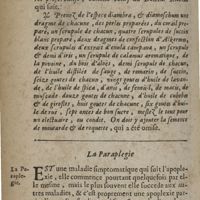 qui suit.
℞. Prenez de l'espece diambra, & diamoschum une
dragme de chacune, des perles preparés, du coral pre-
paré, un scrupule de chacun, quatre scrupules de succin
blanc preparé, deux dragmes de confection d'Alkermes,
deux scrupules d'extrait d'enula campana, un scrupule
& demi d'iris, un scrupule de calamus aromatique, de
la pivoine, du bois d'aloës, demi scrupule de chacun,
de l'huile distillée de sauge, de romarin, de succin,
seize goutes de chacune, vingt goutes de chacune, de
l'huile de spica, d'anis, de fenoüil, de macis, de
douze goutes de chacune, d'huile de canelle
& de girofles, huit goutes de chacune, six goutes d'hui-
le de ruë, sept onces de bon sucre, meslez le tout pour
un electuaire, ou conditum. On doit y ajoûter la semence
de moutarde & de roquette, qui a été omise.
La Paraplegie
La Pa-
raple-
gie.
EST une maladie simptomatique qui suit l'apople-
xie, elle commence pourtant quelquefois par el-
le mesme, mais le plus souvent elle succede aux au-
tres maladies, & c'est proprement une apoplexie par-